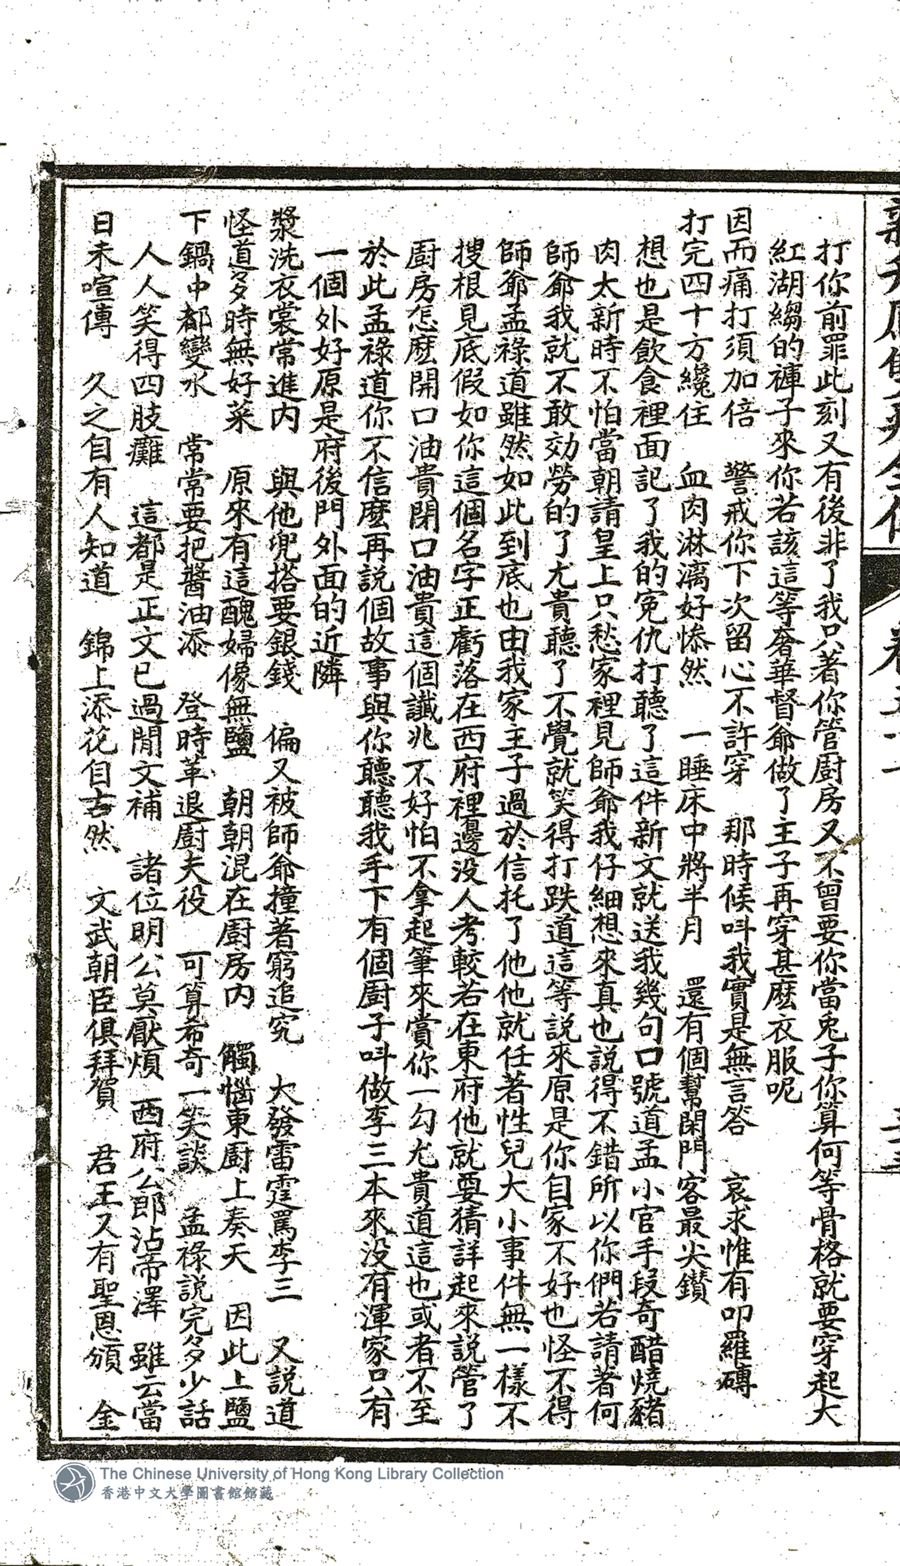 打你前罪此刻又有後非了我只著你管廚房又不曾要你當兎子你算何等骨格就要穿起大
紅湖縐的褲子來你若該這等奢華督爺做了王子再穿甚麽衣服呢
因而痛打須加倍　警戒你下次留心不許穿　那時候呌我實是無言答　哀求惟有叩羅磚
打完四十方纔住　血肉淋漓好慘然　一睡床中將半月　還有個幫閑門客最尖鑽
想也是飲食裡面記了我的冤仇打聽了這件新文就送我幾句口號道孟小官手段奇醋燒豬
肉太新時不怕當朝請皇上只愁家裡見師爺我仔細想來真也說得不錯所以你們若請著何
師爺我就不敢効勞的了尤貴聽了不覺就笑得打跌道這等說來原是你自家不好也怪不得
師爺孟祿道雖然如此到底也由我家王子過於信托了他他就任著性兒大小事件無一樣不
搜根見底假如你這個名字正虧落在西府裡邊没人考較若在東府他就要猜詳起來說管了
廚房怎麽開口油貴閉口油貴這個讖兆不好怕不拿起筆來賞你一勾尤貴道這也或者不至
於此孟祿道你不信麽再說個故事與你聽聽我手下有個廚子呌做李三本來没有渾家只有
一個外好原是府後門外面的近隣
漿洗衣裳常進内　與他兜搭要銀錢　偏又被師爺撞著窮追究　大發雷霆罵李三　又説道
怪道多時無好菜　原來有這醜婦像無鹽　朝朝混在廚房内　觸惱東廚上奏天　因此上鹽
下鍋中都變水　常常要把醬油添　登時革退廚夫役　可算希奇一笑談　孟祿說完多少話
人人笑得四肢癱　這都是正文已過閒文補　諸位明公莫厭煩　西府公郎沾帝澤　雖云當
日未喧傳　久之自有人知道　錦上添花自古然　文武朝臣俱拜賀　君王又有聖恩頒　金
The Chinese University of Hong Kong Library Collection
香港中文大學圖書館館藏